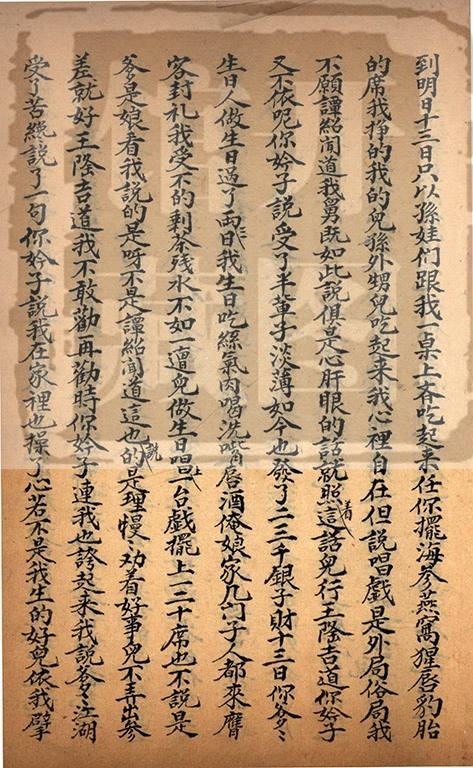 到明日十三日只以孫娃们跟我一桌上吞吃起来任你擺海參燕窩猩唇豹胎
的席我挣的我的兒孫外甥兒吃起来我心裡自在但說唱戲是外局俗局我
不願譚紹聞道我舅既如此説俱是心肝眼的話就照這着話兒行王隆吉道你妗子
又不依呢你妗子説受了半輩子淡薄如今也發了二三千銀子財十三日你爹〻
生日人做生日過了兩三日我生日吃絲氣肉喝洗嘴唇酒俺娘家几門子人都來厝
客封礼我受不的剩茶残水不如一遭兒做生日唱上一台戲擺上一二十席也不說是
爹是娘看我説的是呀不是譚紹聞道這也説的是理慢〻劝着好事兒不弄出參
差就好王隆吉道我不敢勸再勸時你妗子連我也誇起来我説爹〻江湖
受了苦纔説了一句你妗子說我在家裡也操了心若不是我生的好兒依我擘